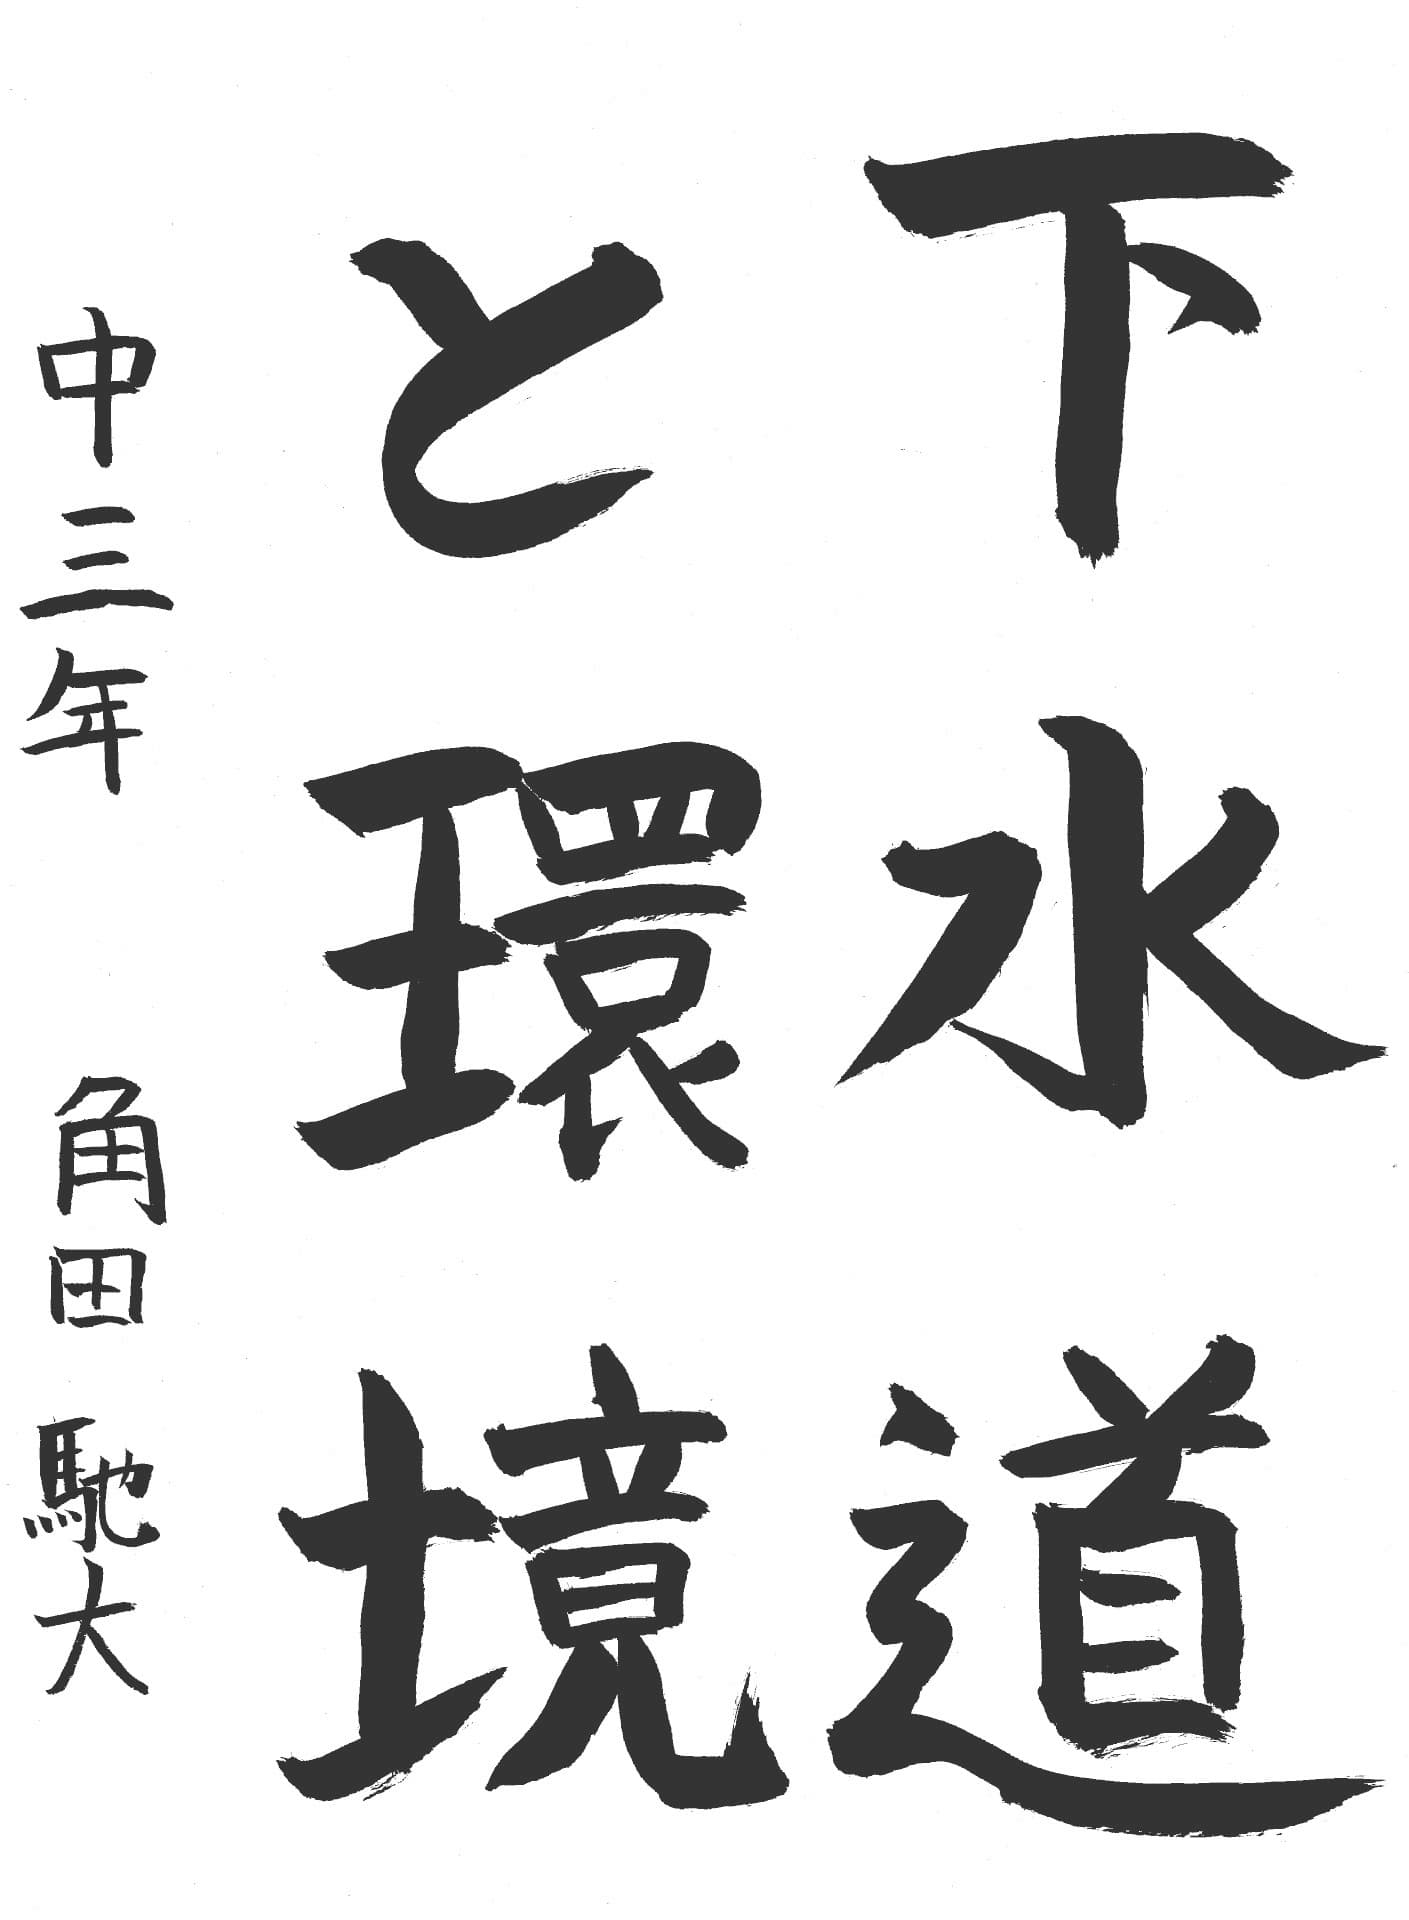 下水道
と環境
中三年 角田馳大